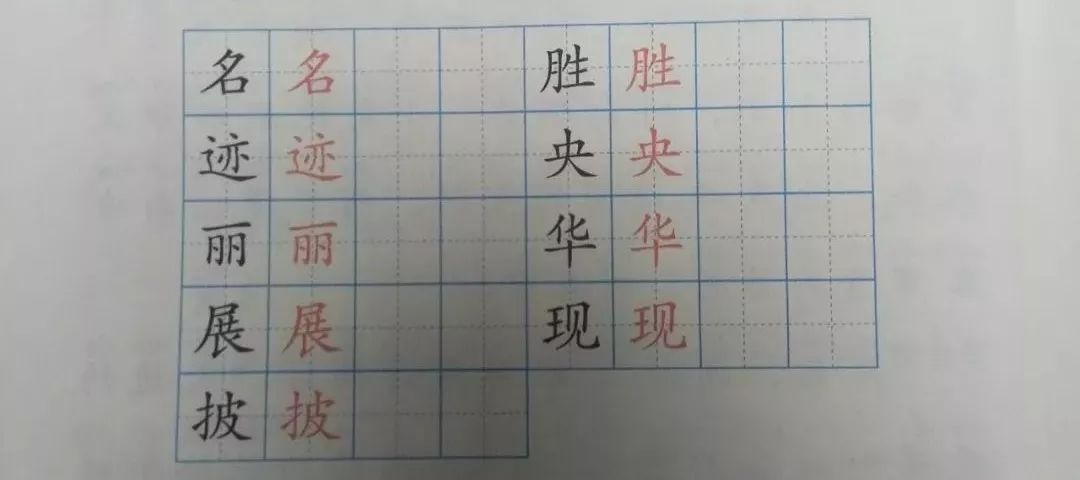 名 名 胜 胜
迹 迹 央 央
丽 丽 华 华
展 展 现 现
披 披